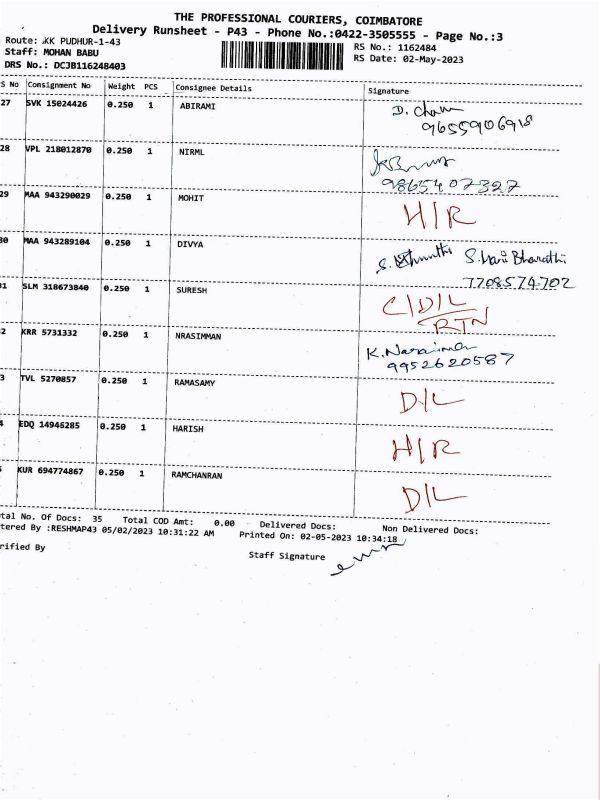 THE PROFESSIONAL COURIERS, COIMBATORE
Delivery Runsheet - P43 - Phone No.:0422-3505555 - Page No.:3
Route: KK PUDHUR-1-43
RS No.: 1162484
Staff: MOHAN BABU
RS Date: 02-May-2023
DRS No.: DCJB116248403
S No Consignment No Weight PCS Consignee Details Signature
27 SVK 15024426 0.250 1 ABIRAMI
9655906918
28 VPL 218012870 0.250 1 NIRML
9865407327
29 MAA 943290029 0.250 1 MOHIT H/R
30 MAA 943289104 0.250 1 DIVYA S. Hari Bharathi
7708574702
31 SLM 318673840 0.250 1 SURESH C/D/L
RTN
2 KRR 5731332 0.250 1 NRASIMMAN K. Narasimman
9952620587
3 TVL 5270857 0.250 1 RAMASAMY D/L
4 EDQ 14946285 0.250 1 HARISH H/R
KUR 694774867 0.250 1 RAMCHANRAN D/L
tal No. Of Docs: 35 Total COD Amt: 0.00 Delivered Docs: Non Delivered Docs:
tered By :RESHMAP43 05/02/2023 10:31:22 AM Printed On: 02-05-2023 10:34:18
rified By Staff Signature